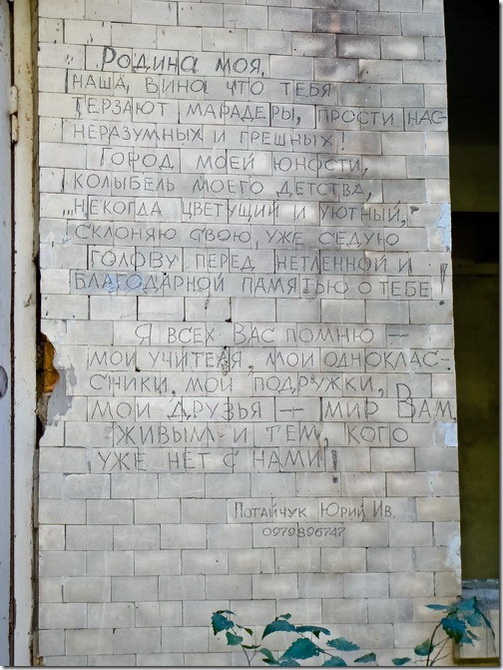 Родина моя,
наша вина что тебя
терзают марадеры, прости нас-
неразумных и грешных!
Город моей юности,
колыбель моего детства,
некогда цветущий и уютный,
склоняю свою, уже седую
голову перед нетленной и
благодарной памятью о тебе!
Я всех Вас помню —
мои учителя, мои одноклас-
сники, мои подружки,
мои друзья — мир Вам
живым и тем, кого
уже нет с нами!
Потайчук Юрий Ив.
0979896747